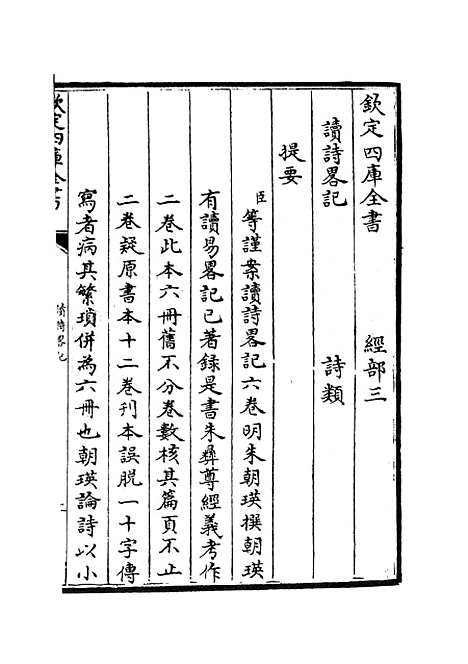 欽定四庫全書 經部三
讀詩畧記 詩類
提要
臣等謹案讀詩畧記六卷明朱朝瑛撰朝瑛
有讀易畧記已著録是書朱彝尊經義考作
二卷此本六冊舊不分卷數核其篇頁不止
二卷疑原書本十二卷刊本誤脱一十字傳
寫者病其繁瑣併為六冊也朝瑛論詩以小
欽定四庫全書
讀詩畧記